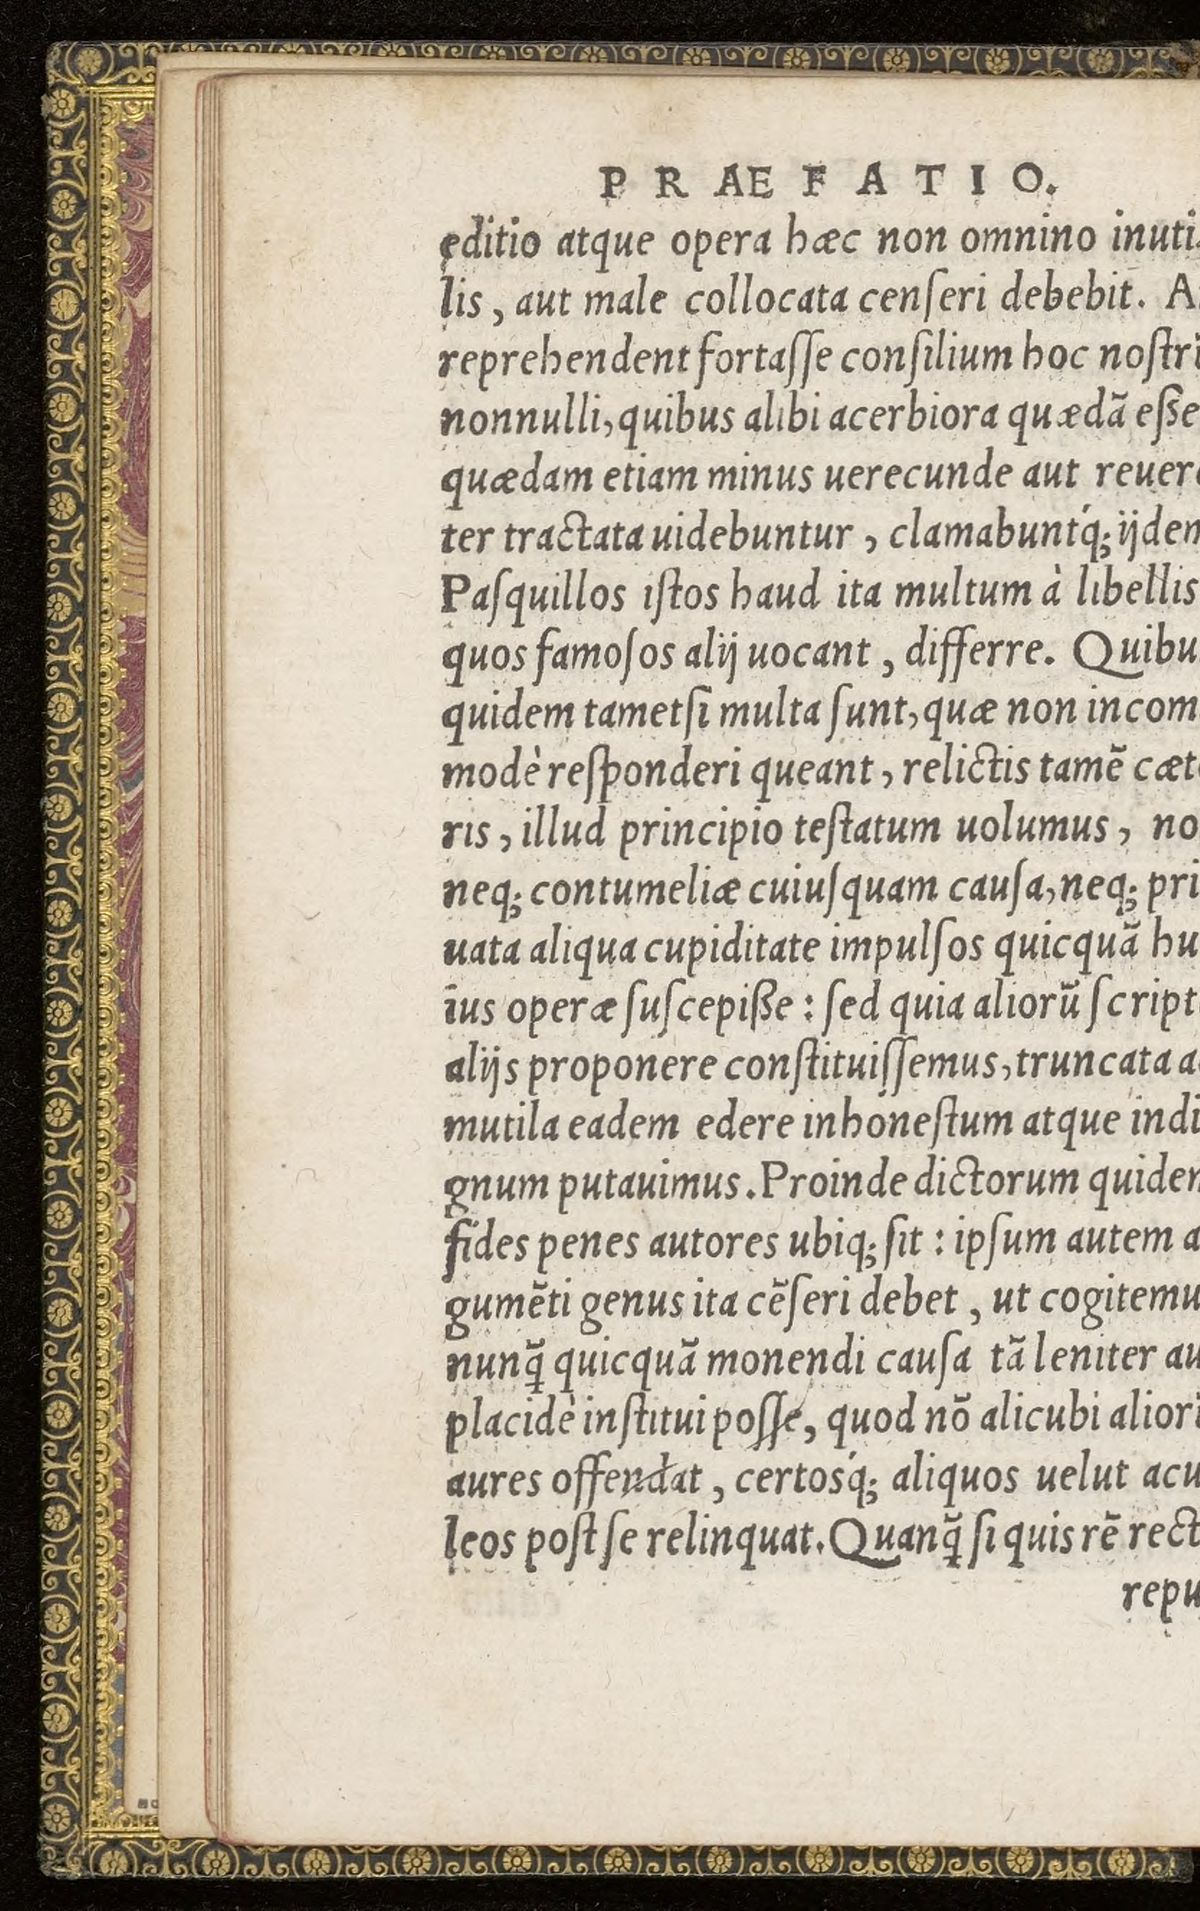 PRAEFATIO.
editio atque opera hæc non omnino inuti
lis, aut male collocata cenſeri debebit. A
reprehendent fortaſſe conſilium hoc noſtrũ
nonnulli, quibus alibi acerbiora quædã eſße
quædam etiam minus uerecunde aut reuer
ter tractata uidebuntur, clamabuntq́; ijdem
Paſquillos iſtos haud ita multum à libellis
quos famoſos alij uocant, differre. Quibu
quidem tametſi multa ſunt, quæ non incom
modè reſponderi queant, relictis tamẽ cæte
ris, illud principio teſtatum uolumus, no
neq; contumeliæ cuiuſquam cauſa, neq; pri
uata aliqua cupiditate impulſos quicquã hu
ius operæ ſuſcepiſße: ſed quia aliorũ ſcript
alijs proponere conſtituiſſemus, truncata a
mutila eadem edere inhoneſtum atque indi
gnum putauimus. Proinde dictorum quidem
fides penes autores ubiq; ſit: ipſum autem a
gumẽti genus ita cẽſeri debet, ut cogitemu
nunq̃ quicquã monendi cauſa tã leniter au
placidè inſtitui poſſe, quod nõ alicubi aliorũ
aures offendat, certosq́; aliquos uelut acu
leos poſt ſe relinquat. Quanq̃ ſi quis rẽ rect
repu